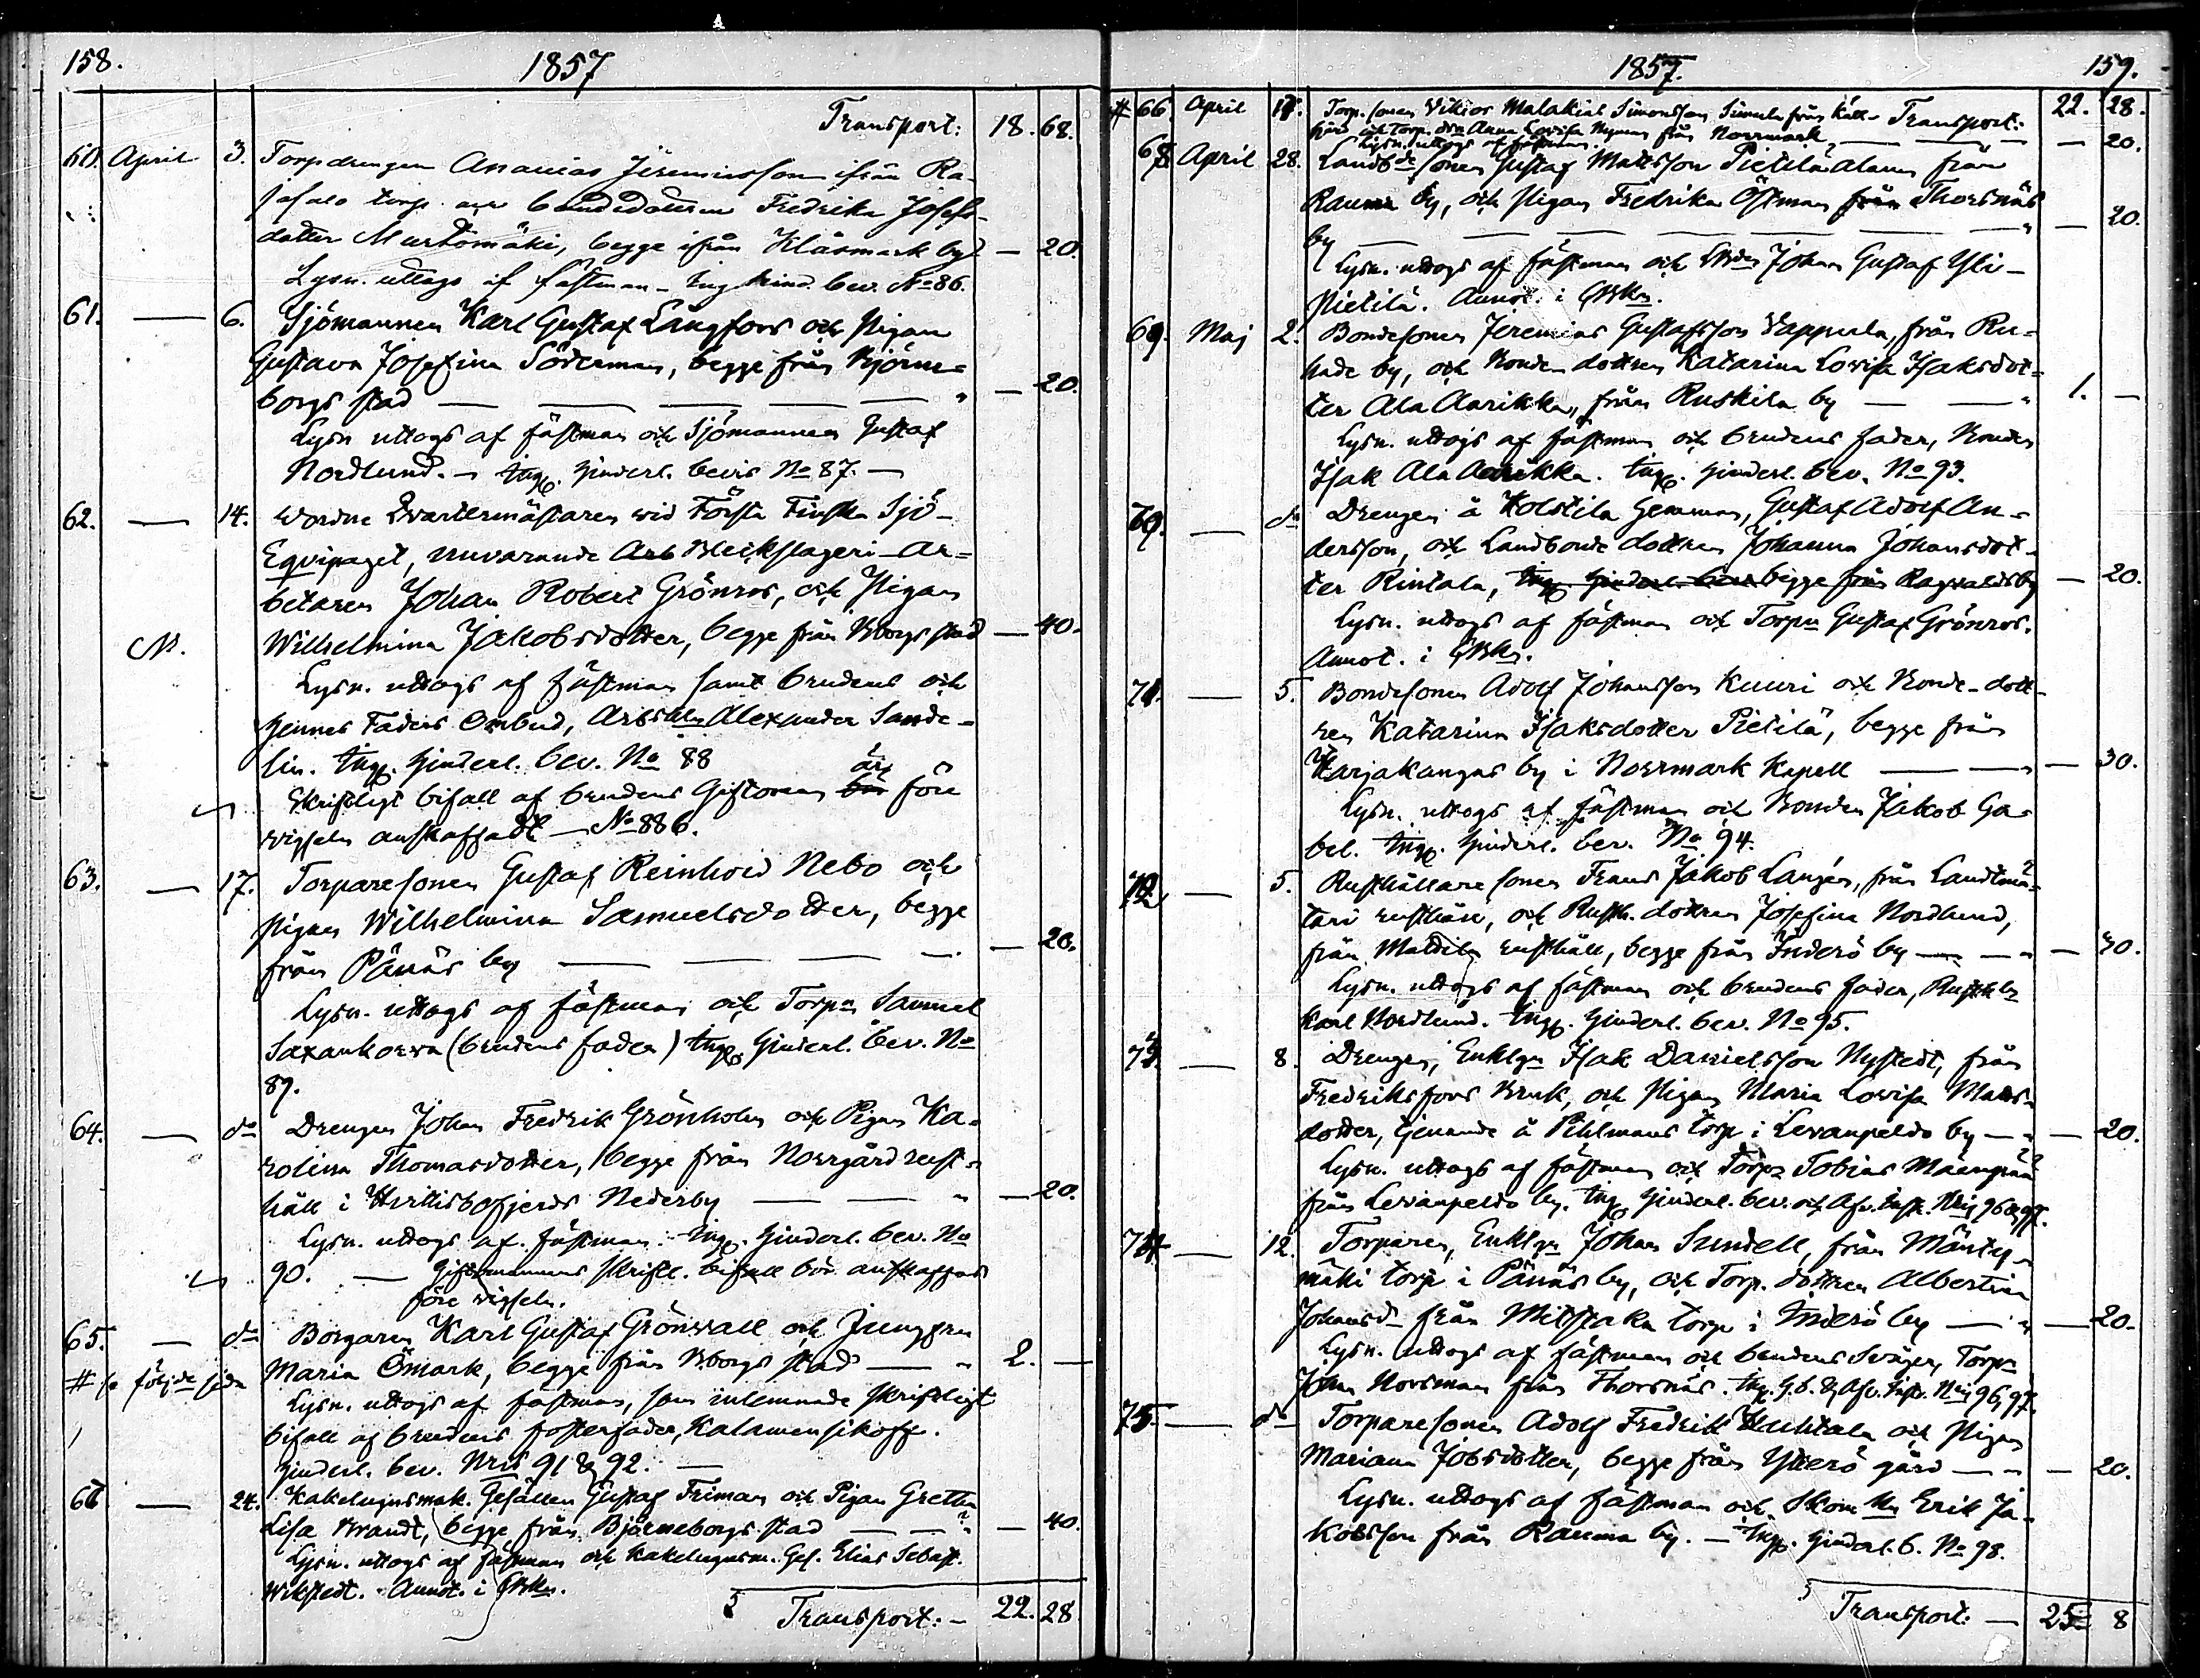 158.
1857
Transport: 18. 68.
60. April 3. Torpdrengen Ananias Jeremiasson ifrån Ra-
torp och bondedottren Fredrika Josefs-
dotter Murtomäki, begge ifrån Klåsmark by — 20.
Lysn. uttogs af fästman - Ing. hind. bev. No 86.
61. — 6. Sjömannen Karl Gustaf Långfors och Pigan
Gustava Josefina Söderman, begge från Björne-
borgs stad — — — — — " — 20.
Lysn uttogs af fästman och Sjömannen Gustaf
Nordlund. — ingg. hinderl. bevis No 87. —
62. — 14. vordne Qvartermästaren vid Första Finska Sjö-
Eqvipaget, nuvarande Arb Bleckslageri-Ar-
betaren Johan Robert Grönroos, och Pigan
Wilhelmina Jakobsdotter, begge från Bborgs stad — 40.
Lysn. uttogs af fästman samt brudens och
hennes Faders Ombud, Arbskn Alexander Sande-
lin. ingg. hinderl. bev. No 88
Skriftligt bifall af brudens Giftoman bör är före
vigseln anskaffadt — No 88 b.
63. — 17. Torparesonen Gustaf Reinhold Nebo och
pigan Wilhelmina Samuelsdotter, begge
från Pånäs by — — — — — 20.
Lysn. uttogs af fästman och Torpn Samuel
Saxankorva (brudens fader) ingg. hinderl. bev. No
89.
64. — do Drengen Johan Fredrik Grönholm och Pigan Ka-
rolina Thomasdotter, begge från Norrgård rust-
håll i Hvittisbofjerds Nederby — — " — 20.
Lysn. uttogs af fästman. ingg. hinderl. bev. No
90. — Giftomannens skriftl. bifall bör anskaffas
före vigseln.
65. — do Borgaren Karl Gustaf Grönvall och Jungfru
Maria Ömark, begge från Bborgs stad — " 2. —
# se följde sida
Lysn. uttogs af fästman, som inlemnade skriftligt
bifall af brudens fosterfader, Kalamensikoff.
hinderl. bev. Nris 91 & 92. —
67 — 24. Kakelugnsmak. Gesällen Gustaf Friman och Pigan Gretha
Lisa Brandt, begge från Björneborgs stad — — " — 40.
Lysn. uttogs af fästman och kakelugnsm. Ges. Elias Sebast.
Wikstedt. Annot. i GBkn.
Transport: — 22. 28
1857.
159.
# 66. April 18. Torp. sonen Viktor Malakias Simonsson Simula från Käll- Transport: 22. 28.
fjärd och Torp. dra Anna Lovisa Nyman från Norrmark — — — 20.
Lysn. uttogs af fästman.
68 April 28. Landbde sonen Gustaf Mattsson Pietilä Alanen från
Rauma by, och pigan Fredrika Östman från Thorsnäs
by — — — — — " — 20.
Lysn. uttogs af fästman och Bonden Johan Gustaf Yli-
Pietilä. Annot. i GBkn.
69. Maj 2. Bondesonen Jeremias Gustafsson Vappula, från Ru-
hade by, och Bonde-dottren Katarina Lovisa Isaksdot-
ter Ala Anrikka, från Ruskila by — — " 1. —
Lysn. uttogs af fästman och brudens fader, Bonden
Isak Ala Anrikka. ingg. hinderl. bev. No 93.
70. — do Drengen å Kolstila hemman, Gustaf Adolf An-
dersson, och Landbonde dottren Johanna Johansdot-
ter Rintala, ingg. hinderl. bev. begge från Ragvaldsby — 20.
Lysn. uttogs af fästman och Torpn Gustaf Grönroos.
Annot. i GBkn.
71. — 5. Bondesonen Adolf Johansson Knuri och Bonde-dott-
ren Katarina Isaksdotter Pietilä, begge från
Karjakangas by i Norrmark Kapell — — " — 30.
Lysn. uttogs af fästman och Bonden Jakob Ga-
bel. ingg. hinderl. bev. No 94.
72 — 5. Rusthållare sonen Frans Jakob Langén, från Landtmä-
tari rusthåll, och Rusth. dottren Josefina Nordlund,
från Mattila rusthåll, begge från Inderö by — — " — 30.
Lysn. uttogs af fästman och brudens fader, Rusthln
Karl Nordlund. ingg. hinderl. bev. No 95.
73. — 8. Drengen, Enklgn Isak Danielsson Nystedt, från
Fredriksfors Bruk, och Pigan Maria Lovisa Matts-
dotter, tjenande å Pihlmans torp i Levanpelto by — " — 20.
Lysn. uttogs af fästman och Torpn Tobias Mäenpää
från Levanpelto by. ingg. hinderl. bev. och Afv. inst. Nris 96 & 97.
74 — 12. Torparen, Enklgn Johan Sundell, från Mänty-
mäki torp i Pånäs by, och Torp. dottren Albertina
Johansd- från Mitstaka torp i Inderö by — " — 20.
Lysn. uttogs af fästman och brudens Svåger, Torpn
Johan Norrman från Thorsnäs. ing. h. b. & Afv. inst. Nris 96, 97.
75. — do Torparesonen Adolf Fredrik Huhtala och Pigan
Mariana Jobsdotter, begge från Ytterö gård — " — 20.
Lysn. uttogs af fästman och Skom kn Erik Ja-
kobsson från Rauma by. — ingg. hinderl. b. No 98.
Transport: — 25 8